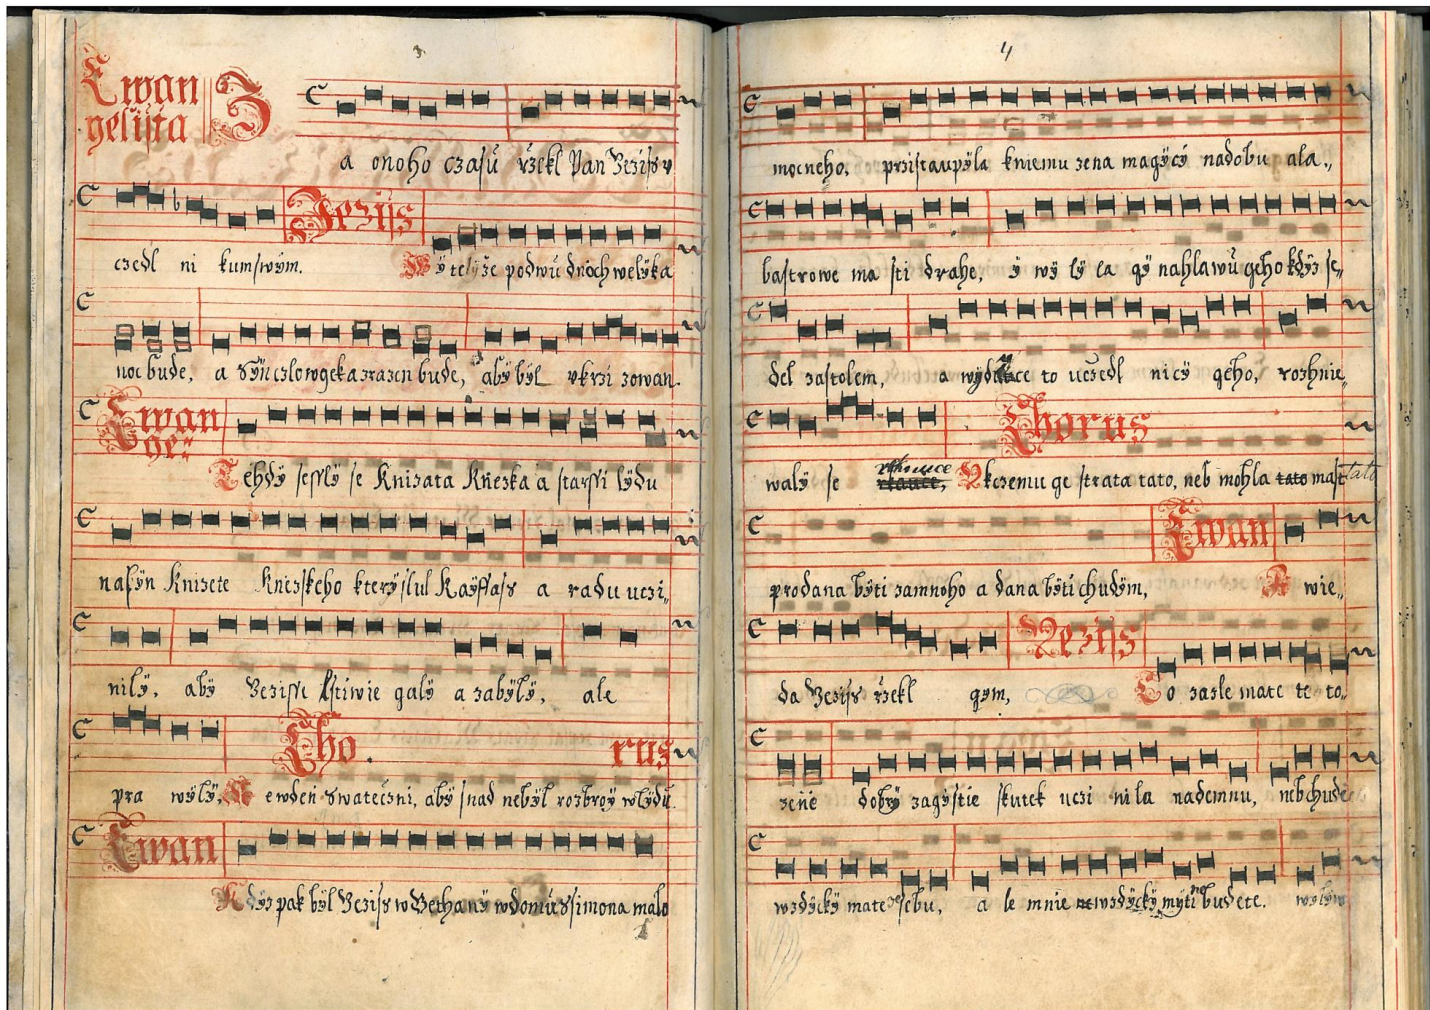 3
Ewan
gelista Z
a onoho czasu rzekl Pan Jeziss v
czedl ni kum swym. Jeziss Wy te lyze po dwu dnoch welyka
noc bude, a Syn czlowgeka zrazen bude, aby byl vkrzi zowan.
Ewan
ge:
Tehdy sessly se Knizata Knezka a starssi lydu
na syn Knizete Knezskeho ktery slul Kayffass a radu uczi„
nily, aby Jezisse lstiwie galy a zabyly, ale
pra wyly, Cho. rus Ne w den Swatecni, aby snad nebyl rozbroy w lydu.
Ewan
Kdyz pak byl Jeziss w Bethany w domu Ssimona malo
4
mocneho, przistaupyla k niemu zena magycy nadobu ala„
bastrowe ma sti drahe, y wy ly la gy na hlawu geho kdyz se„
del za stolem, a wyda ce to uczedl nicy geho, rozhnie„
waly se rkouce Chorus Y k czemu ge strata tato, neb mohla tato mast tato
prodana byti za mnoho a dana byti chudym, Ewan A wie„
da Jeziss rzekl gym, Jeziss Co za zle mate te to„
zene dobry zagistie skutek uczi ni la nademnu, neb chude
wzdycky mate s sebu, a le mnie ne wzdycky myti budete. wylyw